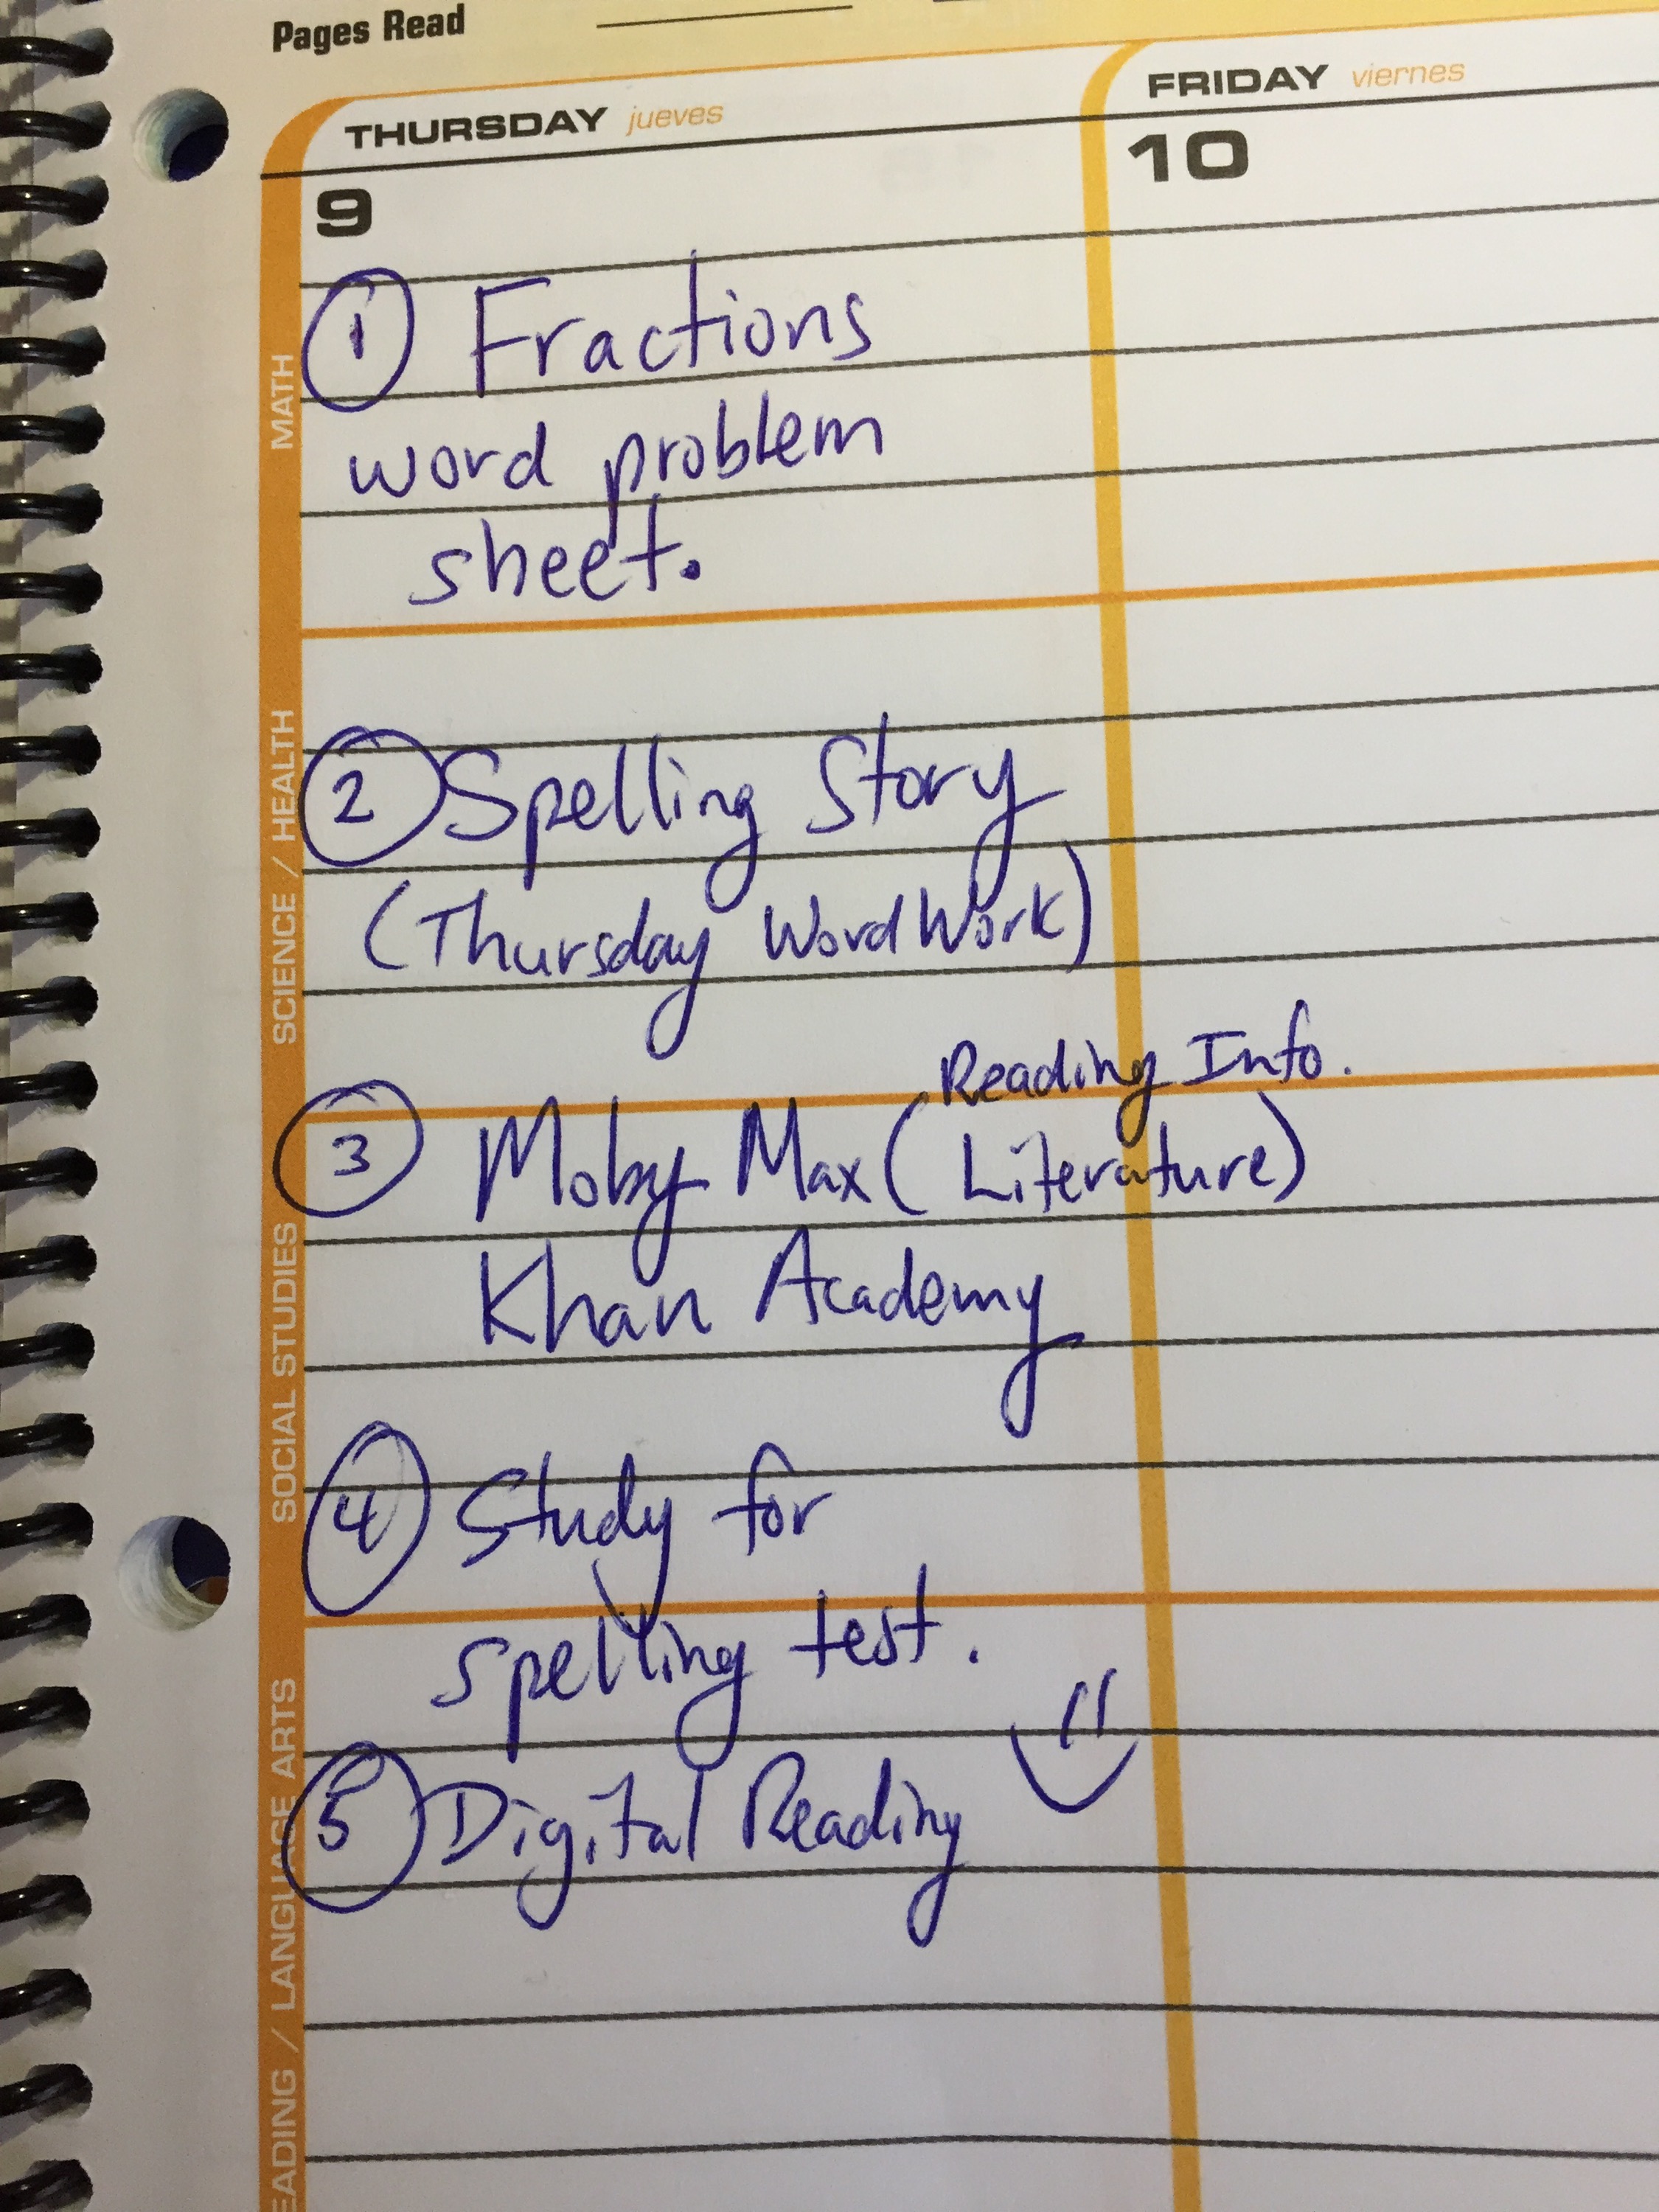 Pages Read
THURSDAY jueves
FRIDAY viernes
9
10
MATH
① Fractions
word problem
sheet.
SCIENCE / HEALTH
② Spelling Story
(Thursday Word Work)
Reading Info.
③ Moby Max (Literature)
Khan Academy
SOCIAL STUDIES
④ Study for
spelling test.
⑤ Digital Reading
EADING / LANGUAGE ARTS